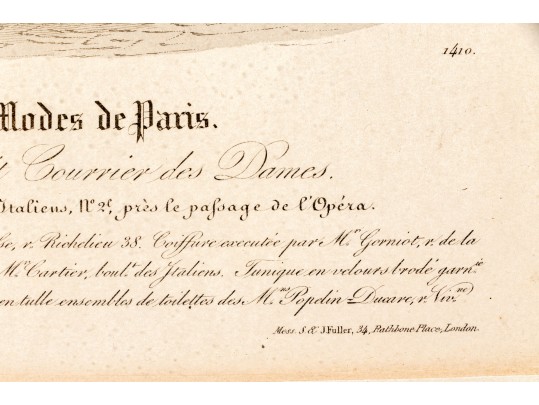 1410.
Modes de Paris.
Courrier des Dames.
Italiens, Nº 2ᶠ, près le passage de l'Opéra.
r. Richelieu 38. Coiffure executée par Mʳ Gerniot, r. de la
Mʳ Cartier, boulᵗ des Italiens. Tunique en velours brodé garnⁱᵉ
en tulle ensembles de toilettes des Mⁿˢ Popelin=Ducare, r. Vivⁿᵉ
Mess. S. & J. Fuller, 34, Rathbone Place, London.